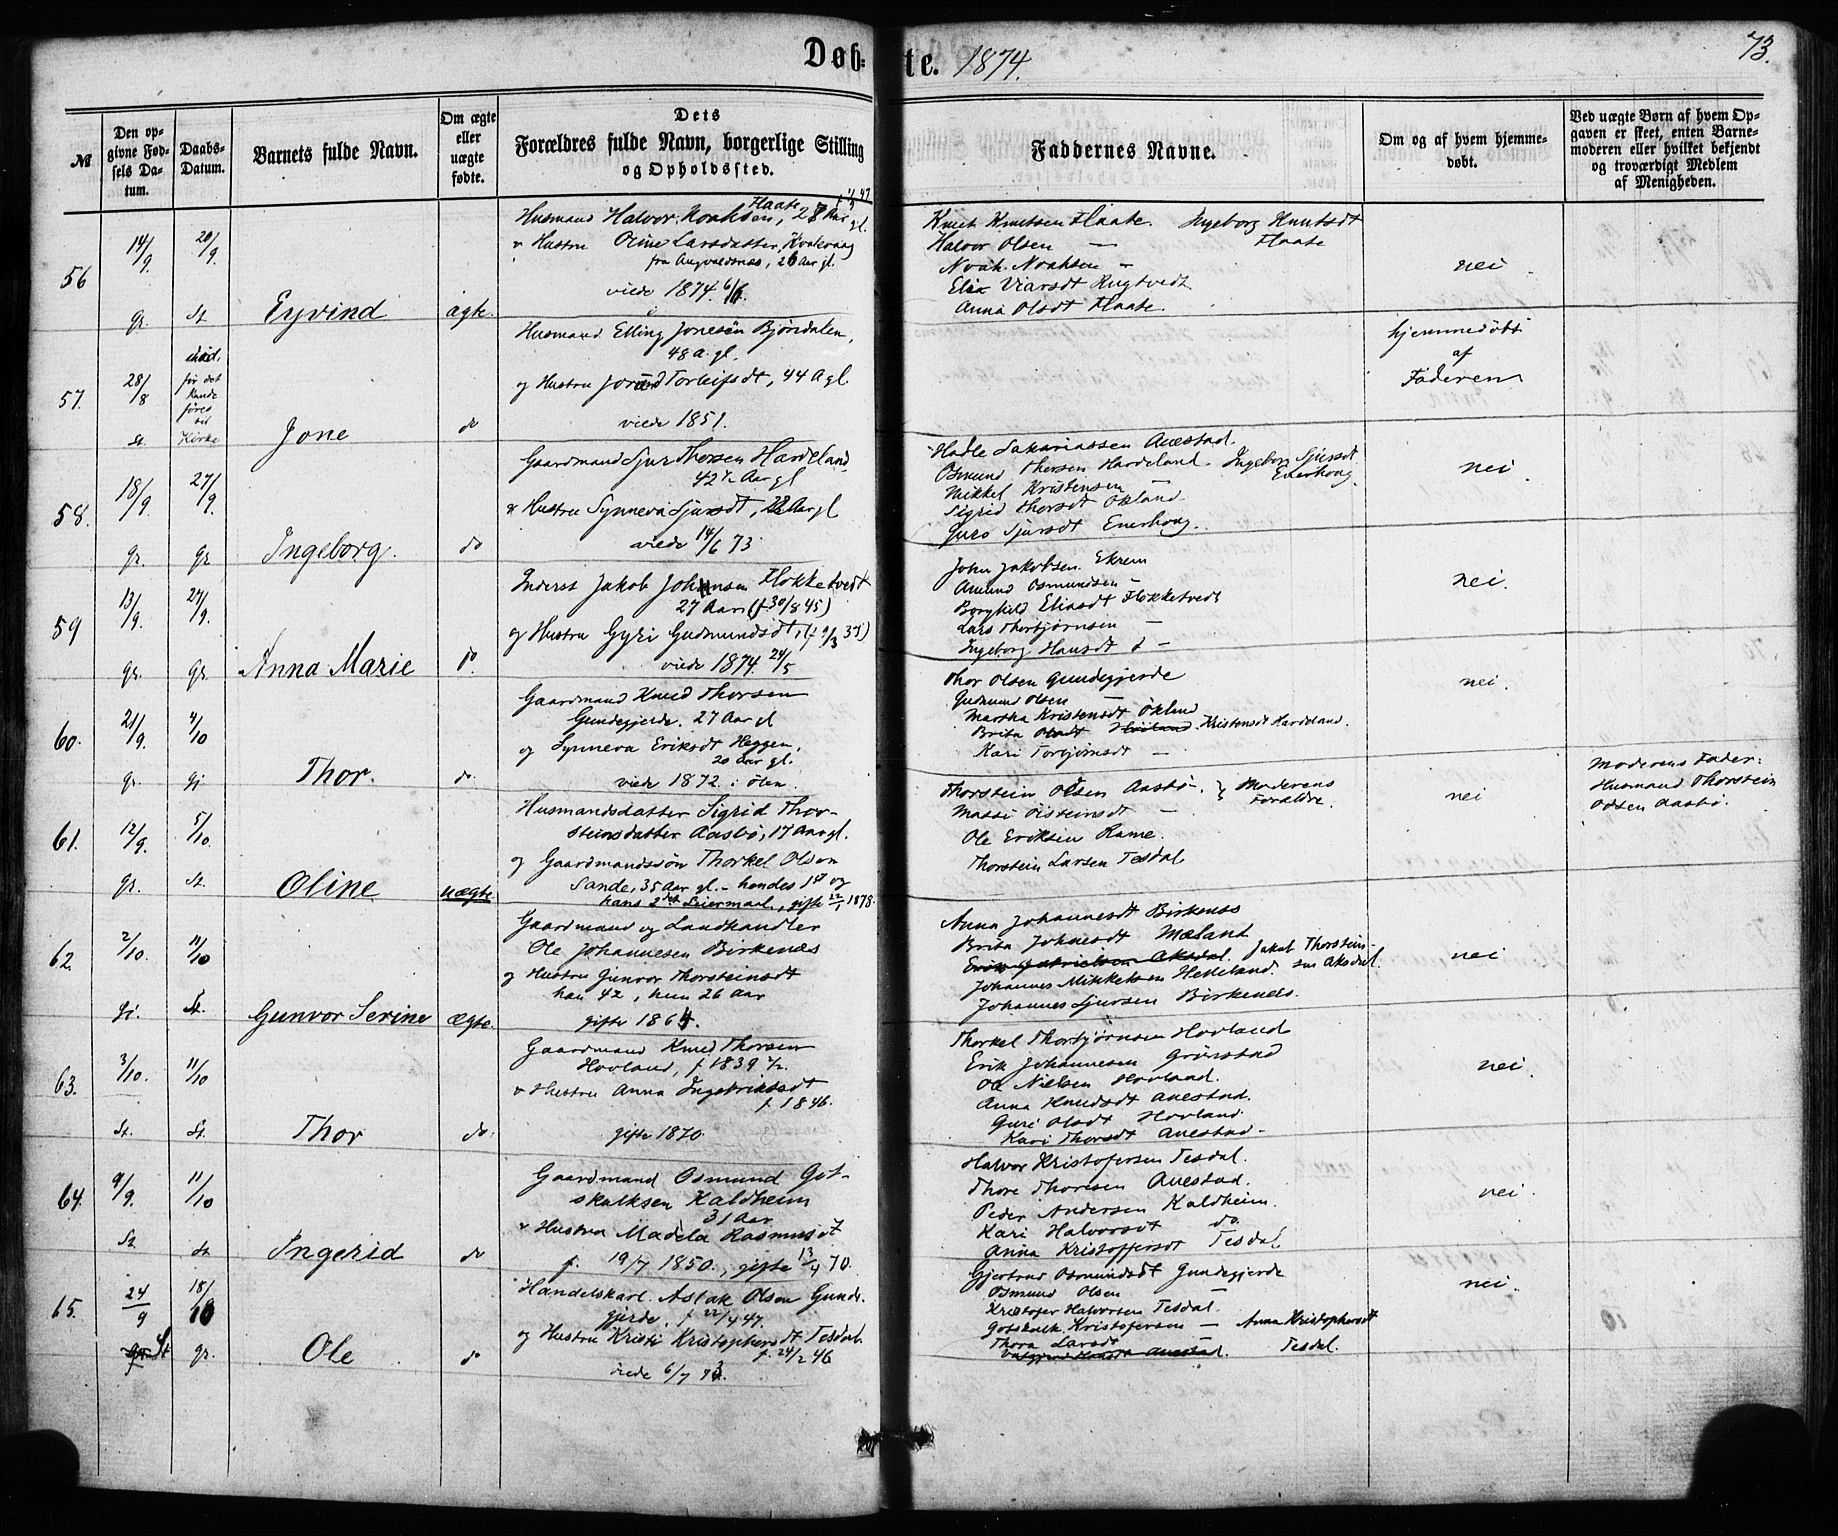 Døb=
te. 1874.
73.
№
Den op-
givne Fød-
sels Da-
tum.
Daabs-
Datum.
Barnets fulde Navn.
Om ægte
eller
uægte
fødte.
Dets
Forældres fulde Navn, borgerlige Stilling
og Opholdssted.
Faddernes Navne.
Om og af hvem hjemme-
døbt.
Ved uægte Børn af hvem Op-
gaven er skeet, enten Barne-
moderen eller hvilket bekjendt
og troværdigt Medlem
af Menigheden.
56
14/9.
20/9.
gr.
St.
Eyvind
ægte.
Husmand Halvor Noahsen, Flaate, 28 Aar gl.
Hustru Oline Larsdatter,
fra Augvaldsnæs, 26 Aar gl.
viede 1874. 6/6.
Knut Knutsen Flaate. Ingeborg Knutsdt
Halvor Olsen — Flaate
Noah Noahsen —
Viarsdt Rugtvedt
Anna Olsdt Flaate.
nei.
57.
28/8
St.
død,
før det
kunde
føres
til
Kirke
Jone
do
Husmand Elling Jonesen Bjørndalen,
48 A. gl.
og Hustru Torleifsdt, 44 A gl.
viede 1851.
hjemmedøbt
af
Faderen
58.
18/9.
27/9.
gr.
gr
Ingeborg.
do
Gaardmand Sjur Thorsen Hardeland
42 ½ Aar gl
& Hustru Synneva Sjursdt, Aar gl
viede 14/6 73
Hadle Sakariassen Auestad.
Osmund Thorsen Hardeland. Ingeborg Sjursdt
Mikkel Kristensen — Enerhoug.
Sigrid Thorsdt Økland
Guro Sjursdt Enerhoug.
nei
59
13/9.
27/9.
gr.
gr.
Anna Marie
do.
Inderst Jakob Johansen Flokketvedt
27 Aar (f 30/8 45)
og Hustru Gyri Gudmundsdt,
viede 1874. 24/5
John Jakobsen Ekrem
Amund Osmundsen —
Borghild Eliasdt Flokketvedt
Lars Thorbjørnsen —
Ingeborg Hansdt —
nei.
60.
21/9.
4/10
gr.
gr.
Thor.
do.
Gaardmand Knud Thorsen
Gundegjerde. 27 Aar gl
og Synneva Eriksdt Heggen,
20 Aar gl.
viede 1872. i Ølen.
Thor Olsen Gundegjerde
Gudmund Olsen —
Martha Kristensdt Økland
Brita Kristensdt Hardeland.
Kari Torbjørnsdt —
nei.
61.
12/9.
5/10.
gr.
St.
Oline
uægte.
Husmandsdatter Sigrid Thor-
steinsdatter Aasbø, 17 Aar gl.
og Gaardmandssøn Thorkel Olsen
Sande, 35 Aar gl. – hendes 1st og
hans 2det Leiermaal., gifte 22/1 1878.
Thorstein Olsen Aasbø. } Moderens
Massi Øisteinsdt — Forældre.
Ole Eriksen Rame.
Thorstein Larsen Tesdal
nei
Moderens Fader:
Husmand Thorstein
Olsen Aasbø.
62.
2/10.
11/10
gr.
St.
Gunvor Serine
Ægte.
Gaardmand og Landhandler
Ole Johannesen Birkenæs
og Hustru Gunvor Thorsteinsdt
han 42, hun 26 Aar
gifte 1864.
Anna Johannesdt Birkenæs
Brita Johnesdt Mæland
Erik Gabrielsen Aksdal. Jakob Thorstein-
Johannes Mikkelsen Hetleland. sen Aksdal.
Johannes Sjursen Birkenæs.
nei
63.
3/10.
11/10
St.
St.
Thor
do.
Gaardmand Knud Thorsen
Hovland, f 1839
& Hustru Anna Ingebriktsdt
f. 1846.
gifte 1870.
Thorkel Thorbjørnsen Hovland
Erik Johannesen Grønstad
Ole Nielsen Hovland.
Anna Knudsdt Auestad.
Guri Olsdt Hovland.
Kari Thorsdt Auestad.
nei.
64.
9/9.
11/10
St.
St.
Ingerid
do
Gaardmand Osmund Got-
skalksen Kaldheim
31 Aar
& Hustru Madela Rasmusdt
f. 19/7 1850., gifte 13/4 70.
Halvor Kristofersen Tesdal.
Thore Thoresen Auestad.
Peder Andersen Kaldheim
Kari Halvorsdt do.
Anna Kristoffersdt Tesdal
nei.
65.
24/9
18/10
St
gr.
Ole
do
Handelskarl. Aslak Olsen Gunde-
gjerde. f 22/4 47.
og Hustru Kristi Kristophersdt Tesdal.
f. 24/2 46
viede 6/7 73.
Gjertrud Osmundsdt Gundegjerde
Osmund Olsen —
Kristofer Halvorsen Tesdal
Gotskalk Kristofersen — Anna Kristophersdt
Thora Larsdt — Tesdal.
nei.